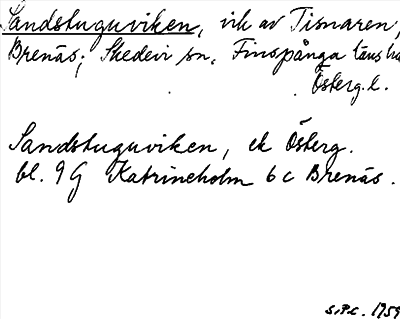 Sandstuguviken, vik av Tisnaren,
Brenäs; Skedevi sn, Finspånga läns hd
Österg.l.
Sandstuguviken, ek Österg.
bl. 9G Katrineholm 6c Brenäs.
S.P.C. 1959